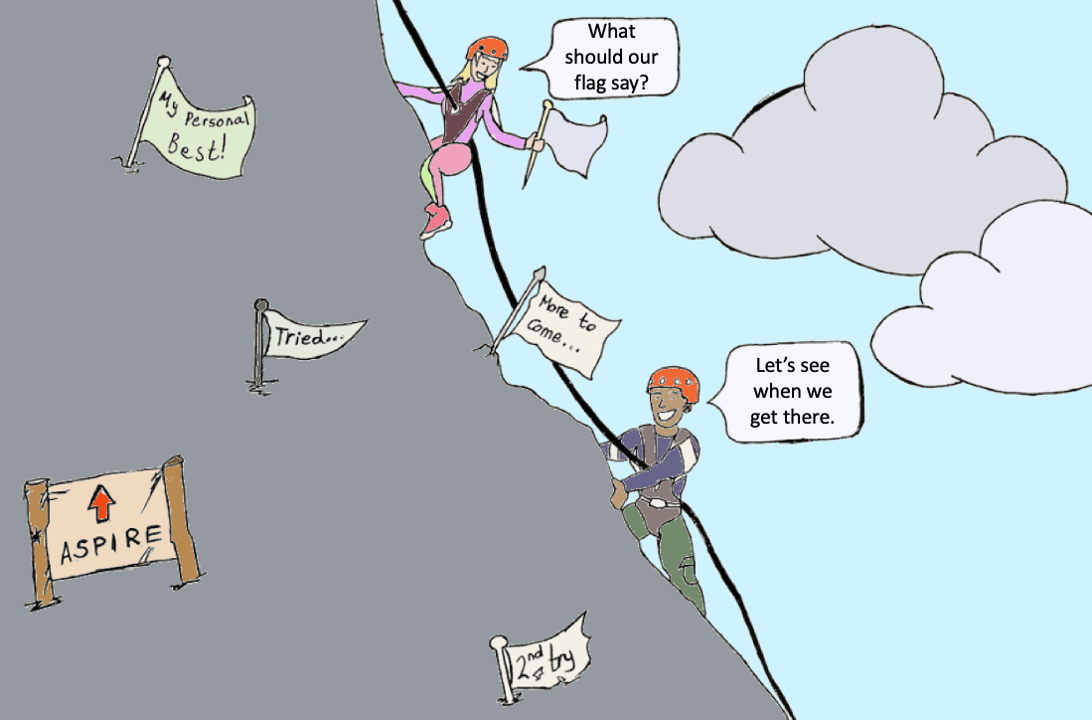 What
should our
flag say?
My Personal
Best!
More to
Come...
Tried...
Let's see
when we
get there.
ASPIRE
2nd try